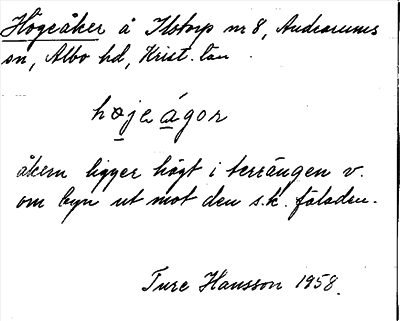 Högeåker å Ilstorp nr 8, Andrarums
sn, Albo hd, Krist. län
højeágor
åkern ligger högt i terrängen v.
om byn ut mot den s.k. fäladen.
Ture Hansson 1958.